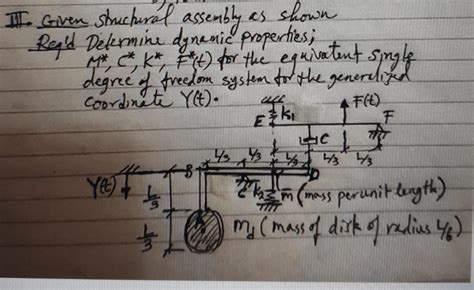 III Given structural assembly as shown
Req'd Determine dynamic properties;
M*, C*, K* F*(t) for the equivalent single
degree of freedom system for the generelized
Coordinate Y(t).
F(t)
E k₁ F
C
L/3 L/3 L/3 L/3
Y(t) B D
L/3 C k₂ m̅ (mass per unit length)
L/3 m_d (mass of disk of radius L/6)